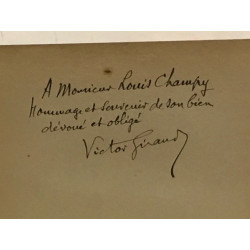 A Monsieur Louis Champy
Hommage et souvenir de son bien
dévoué et obligé
Victor Giraud